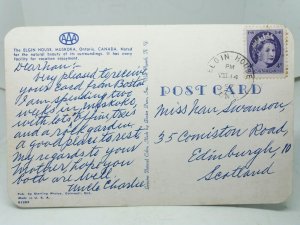 The ELGIN HOUSE, MUSKOKA, Ontario, CANADA. Noted
for the natural beauty of its surroundings. It has many
facility for vacation enjoyment.
AAA
Dear Jean:
Very pleased to receive
your card from Boston
I am spending two
weeks in Muskoka,
with lots of fir trees
and a rock garden.
A good place to rest
My regards to your
Mother, hope you
both are well.
Uncle Charlie
Pub. by Sterling Photos,
Made in U. S. A.
POST CARD
ELGIN HOUSE
PM
VIII 14
CANADA
Miss Jean Swanson,
35 Comiston Road,
Edinburgh, 10
Scotland